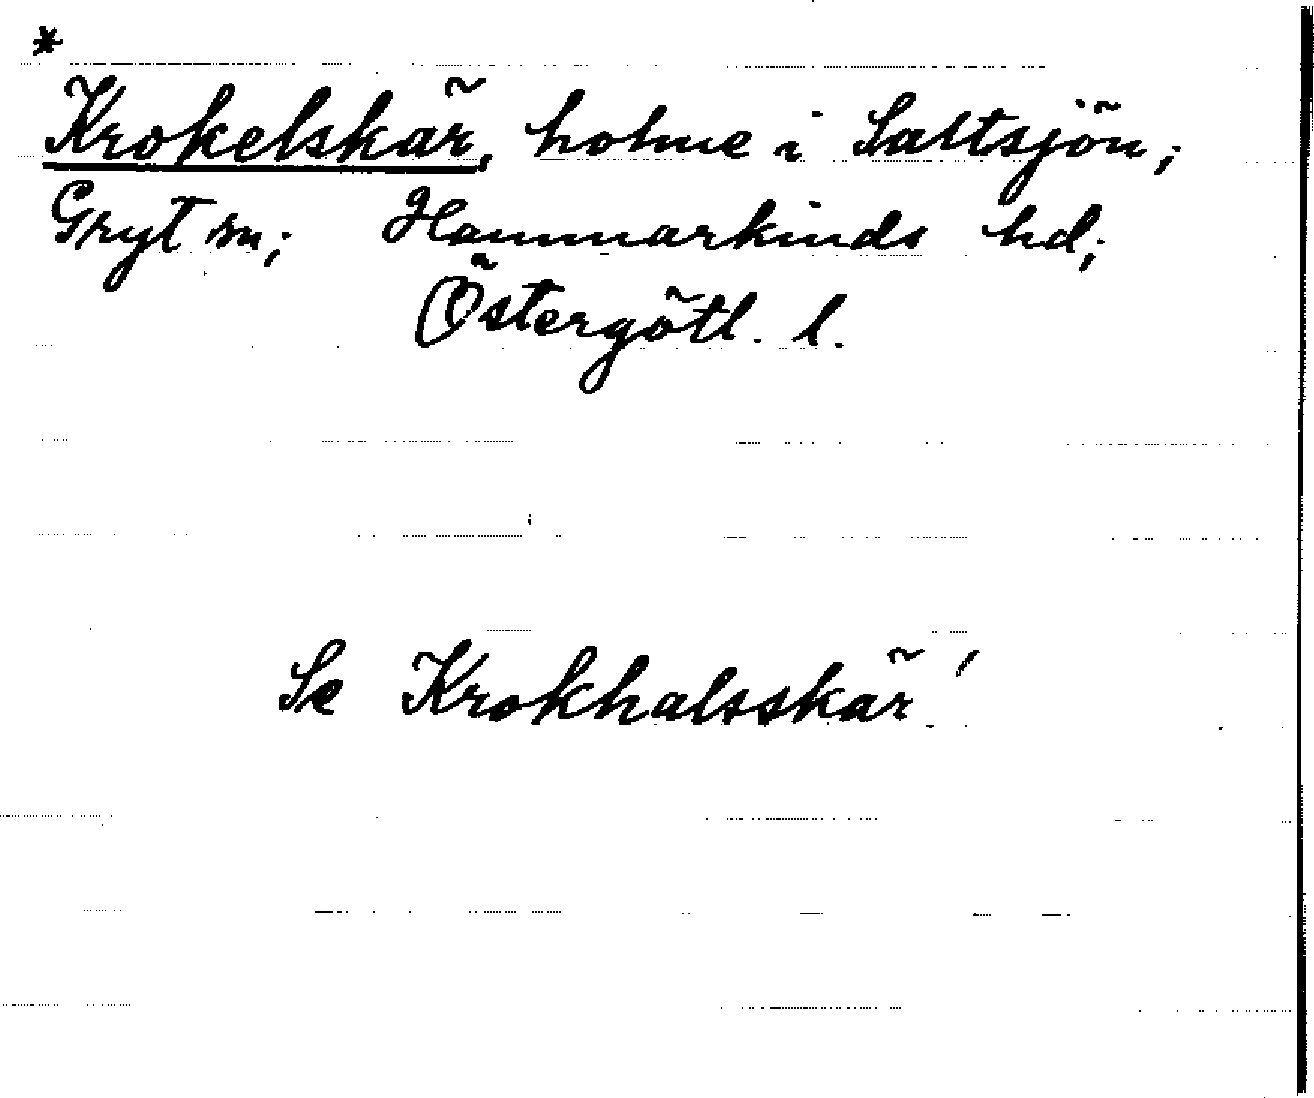 *
Krokelskär, holme i Saltsjön;
Gryt sn; Hammarkinds hd;
Östergötl. l.
Se Krokhalsskär!